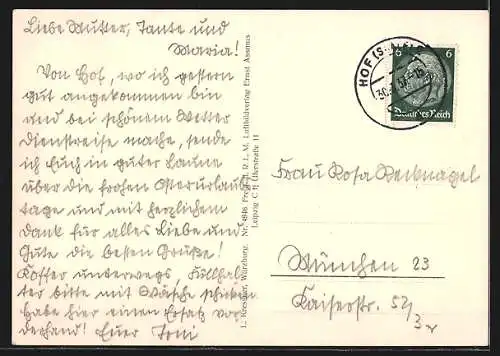 Liebe Mutter, Tante und
Maria!
Von Hof, wo ich gestern
gut angekommen bin
und bei schönem Wetter
Dienstreise mache, sende
ich Euch in guter Laune
über die frohen Osterurlaub
tage und mit herzlichem
Dank für alles Liebe und
Gute die besten Grüße!
Koffer unterwegs. Füllhal-
ter bitte mit Wäsche schicken
habe hier einen Ersatz vor-
derhand! Euer Toni
L. Würzburg. Nr. 4846 Freigeg. d. R. L. M. Luftbildverlag Ernst Assmus
Leipzig C 1, 11
HOF (SAALE)
6 6
Deutsches Reich
Frau Rosa Recknagel
München 23
Kaiserstr. 52/3 r